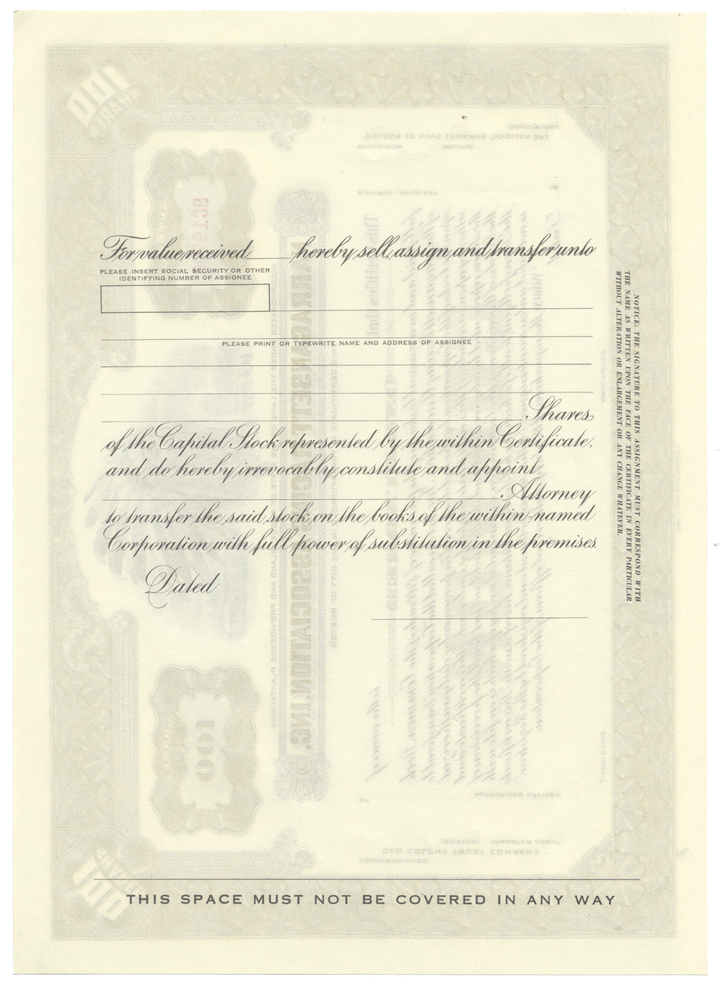 For value received hereby sell, assign and transfer unto
PLEASE INSERT SOCIAL SECURITY OR OTHER
IDENTIFYING NUMBER OF ASSIGNEE
PLEASE PRINT OR TYPEWRITE NAME AND ADDRESS OF ASSIGNEE
Shares
of the Capital Stock represented by the within Certificate,
and do hereby irrevocably constitute and appoint
Attorney
to transfer the said stock on the books of the within-named
Corporation with full power of substitution in the premises
Dated
NOTICE: THE SIGNATURE TO THIS ASSIGNMENT MUST CORRESPOND WITH
THE NAME AS WRITTEN UPON THE FACE OF THE CERTIFICATE IN EVERY PARTICULAR
WITHOUT ALTERATION OR ENLARGEMENT OR ANY CHANGE WHATEVER.
THIS SPACE MUST NOT BE COVERED IN ANY WAY